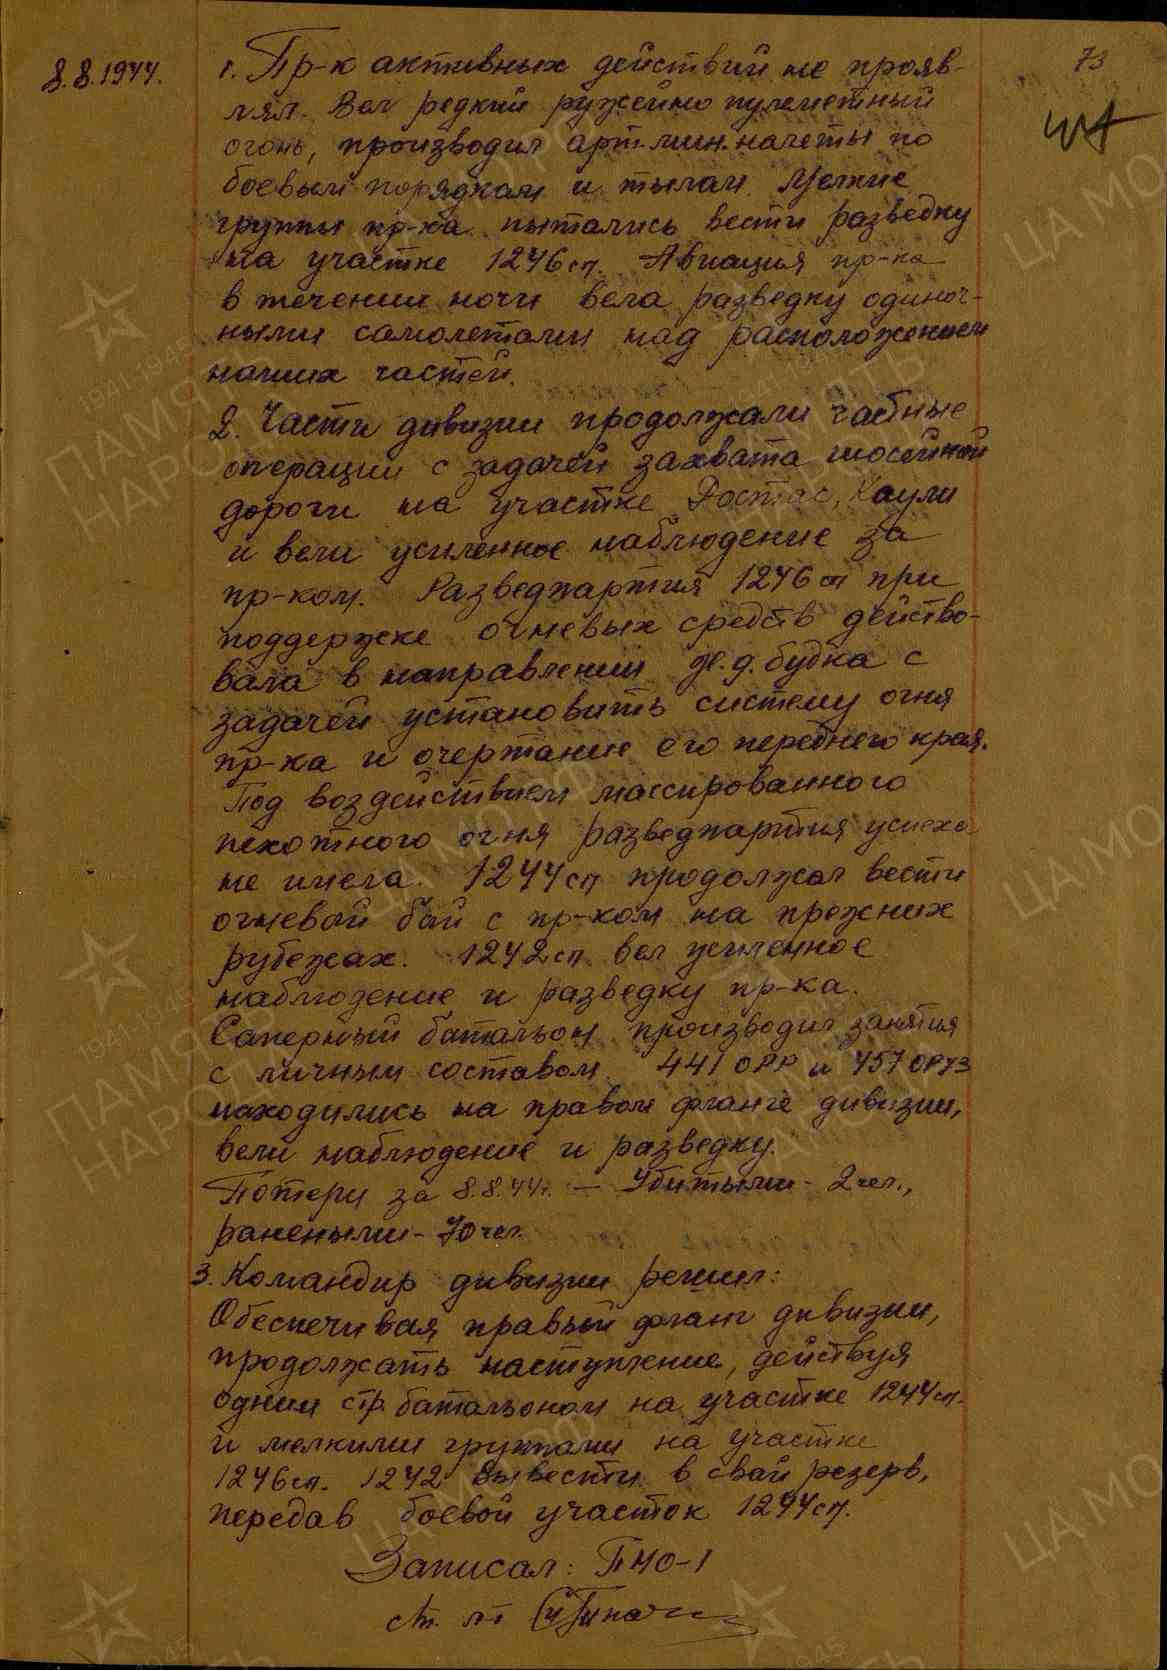 73
8.8.1944.
1. Пр-к активных действий не прояв-
лял. Вел редкий ружейно пулеметный
огонь, производил арт.мин.налеты по
боевым порядкам и тылам. Мелкие
группы пр-ка пытались вести разведку
на участке 1246сп. Авиация пр-ка
в течении ночи вела разведку одиноч-
ными самолетами над расположением
наших частей.
2. Части дивизии продолжали частные
операции с задачей захвата шосейной
дороги на участке Ростас, Каули
и вели усиленное наблюдение за
пр-ком. Разведпартия 1246 сп при
поддержке огневых средств действо-
вала в направлении ж.д. будка с
задачей установить систему огня
пр-ка и очертание его переднего края.
Под воздействием массированного
пехотного огня разведпартия успеха
не имела. 1244сп продолжал вести
огневой бой с пр-ком на прежних
рубежах. 1242сп вел усиленное
наблюдение и разведку пр-ка.
Саперный батальон производил занятия
с личным составом. 441 ОРР и 457 ОРУЗ
находились на правом фланге дивизии,
вели наблюдение и разведку.
Потери за 8.8.44г. – Убитыми - 2 чел.,
ранеными - 70 чел.
3. Командир дивизии решил:
Обеспечивая правый фланг дивизии,
продолжать наступление, действуя
одним стр. батальоном на участке 1244сп.
и мелкими группами на участке
1246сп. 1242 вывести в свой резерв,
передав боевой участок 1244сп.
Записал: ПНО-1
ст. л-т
ЦА МО РФ
ПАМЯТЬ
НАРОДА
1941-1945